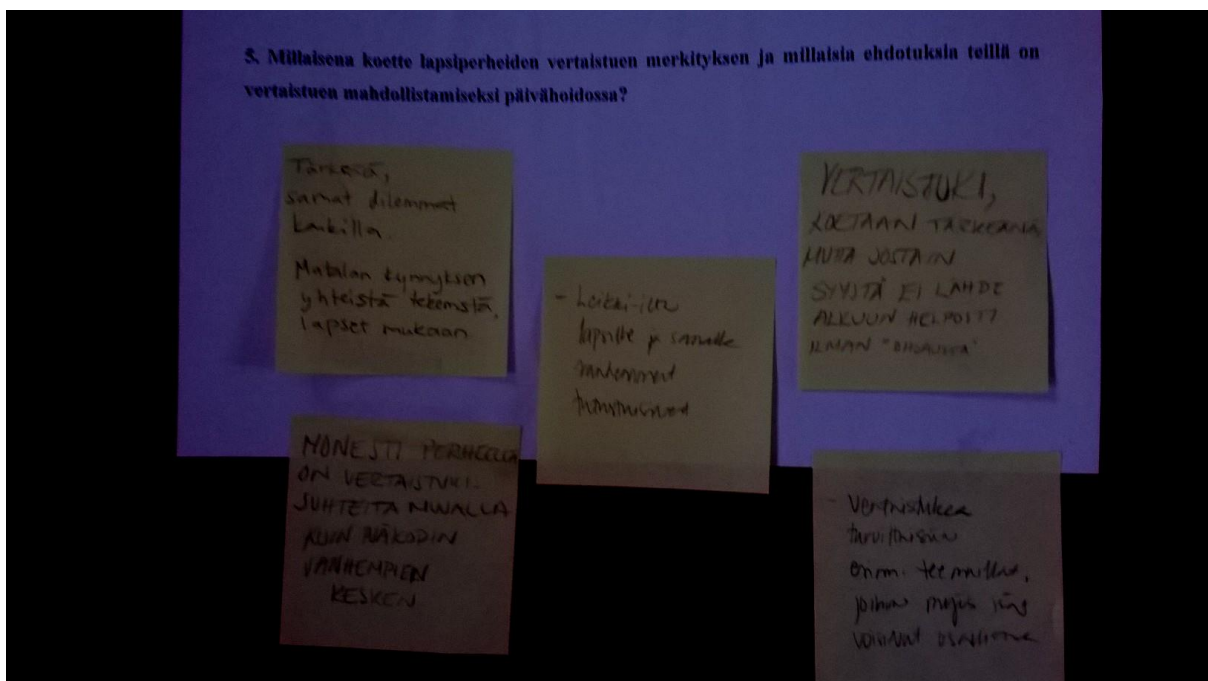 5. Millaisena koette lapsiperheiden vertaistuen merkityksen ja millaisia ehdotuksia teillä on
vertaistuen mahdollistamiseksi päivähoidossa?
Tärkeää,
samat dilemmat
kaikilla.
Matalan kynnyksen
yhteistä tekemstä,
lapset mukaan
- Leikki-ilta
lapsille ja samalla
vanhemmat
tutustuisivat
VERTAISTUKI,
KOETAAN TÄRKEÄNÄ,
MUTTA JOSTAIN
SYYSTÄ EI LÄHDE
ALKUUN HELPOSTI
ILMAN "OHJAUSTA"
MONESTI PERHEELLÄ
ON VERTAISTUKI-
SUHTEITA MUUALLA
KUIN PÄIKODIN
VANHEMPIEN
KESKEN
- Vertaistukea
tarvittaisiin
teemailtoja,
joihin myös
voisivat osallistua